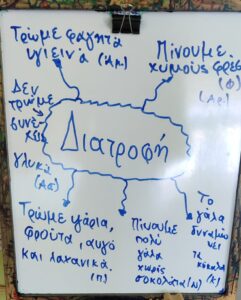 Τρώμε φαγητά
υγιεινά (Αλ)
Πίνουμε
χυμούς φρέσ
(Φ)
(Αρ)
Δεν
τρώμε
συνέ-
χεια
γλυκά
(Αα)
Διατροφή
Τρώμε ψάρια,
φρούτα, αυγό
και λαχανικά.
(Π)
Πίνουμε
πολύ
γάλα
χωρίς
σοκολάτα (Ν)
Το
γάλα
δυναμώ
νει
τα
κόκαλα
(Κ)